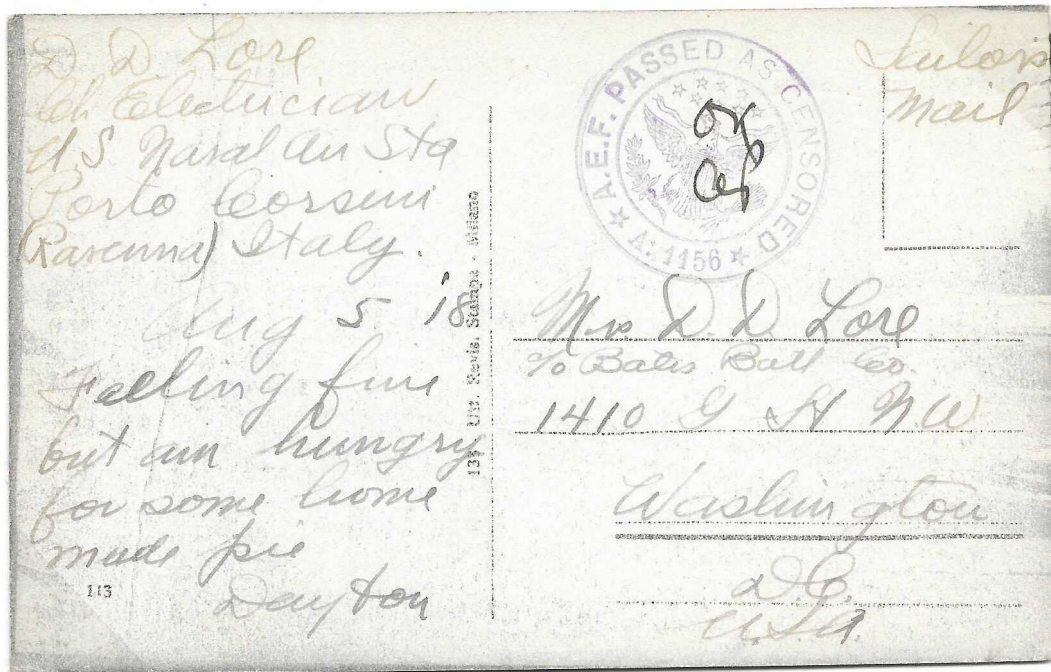 D D Lore
Ch Electrician
U.S. Naval Air Sta
Porto Corsini
(Ravenna) Italy.
Aug 5 '18
Feeling fine
but am hungry
for some home
made pie
Dayton
113
Uff. Revis. Stampa - Milano
A.E.F. PASSED AS CENSORED
A. 1156
Sailors
Mail
Mrs D. D. Lore
c/o Bates Ball Co.
1410 G St N.W
Washington
D.C.
U.S.A.